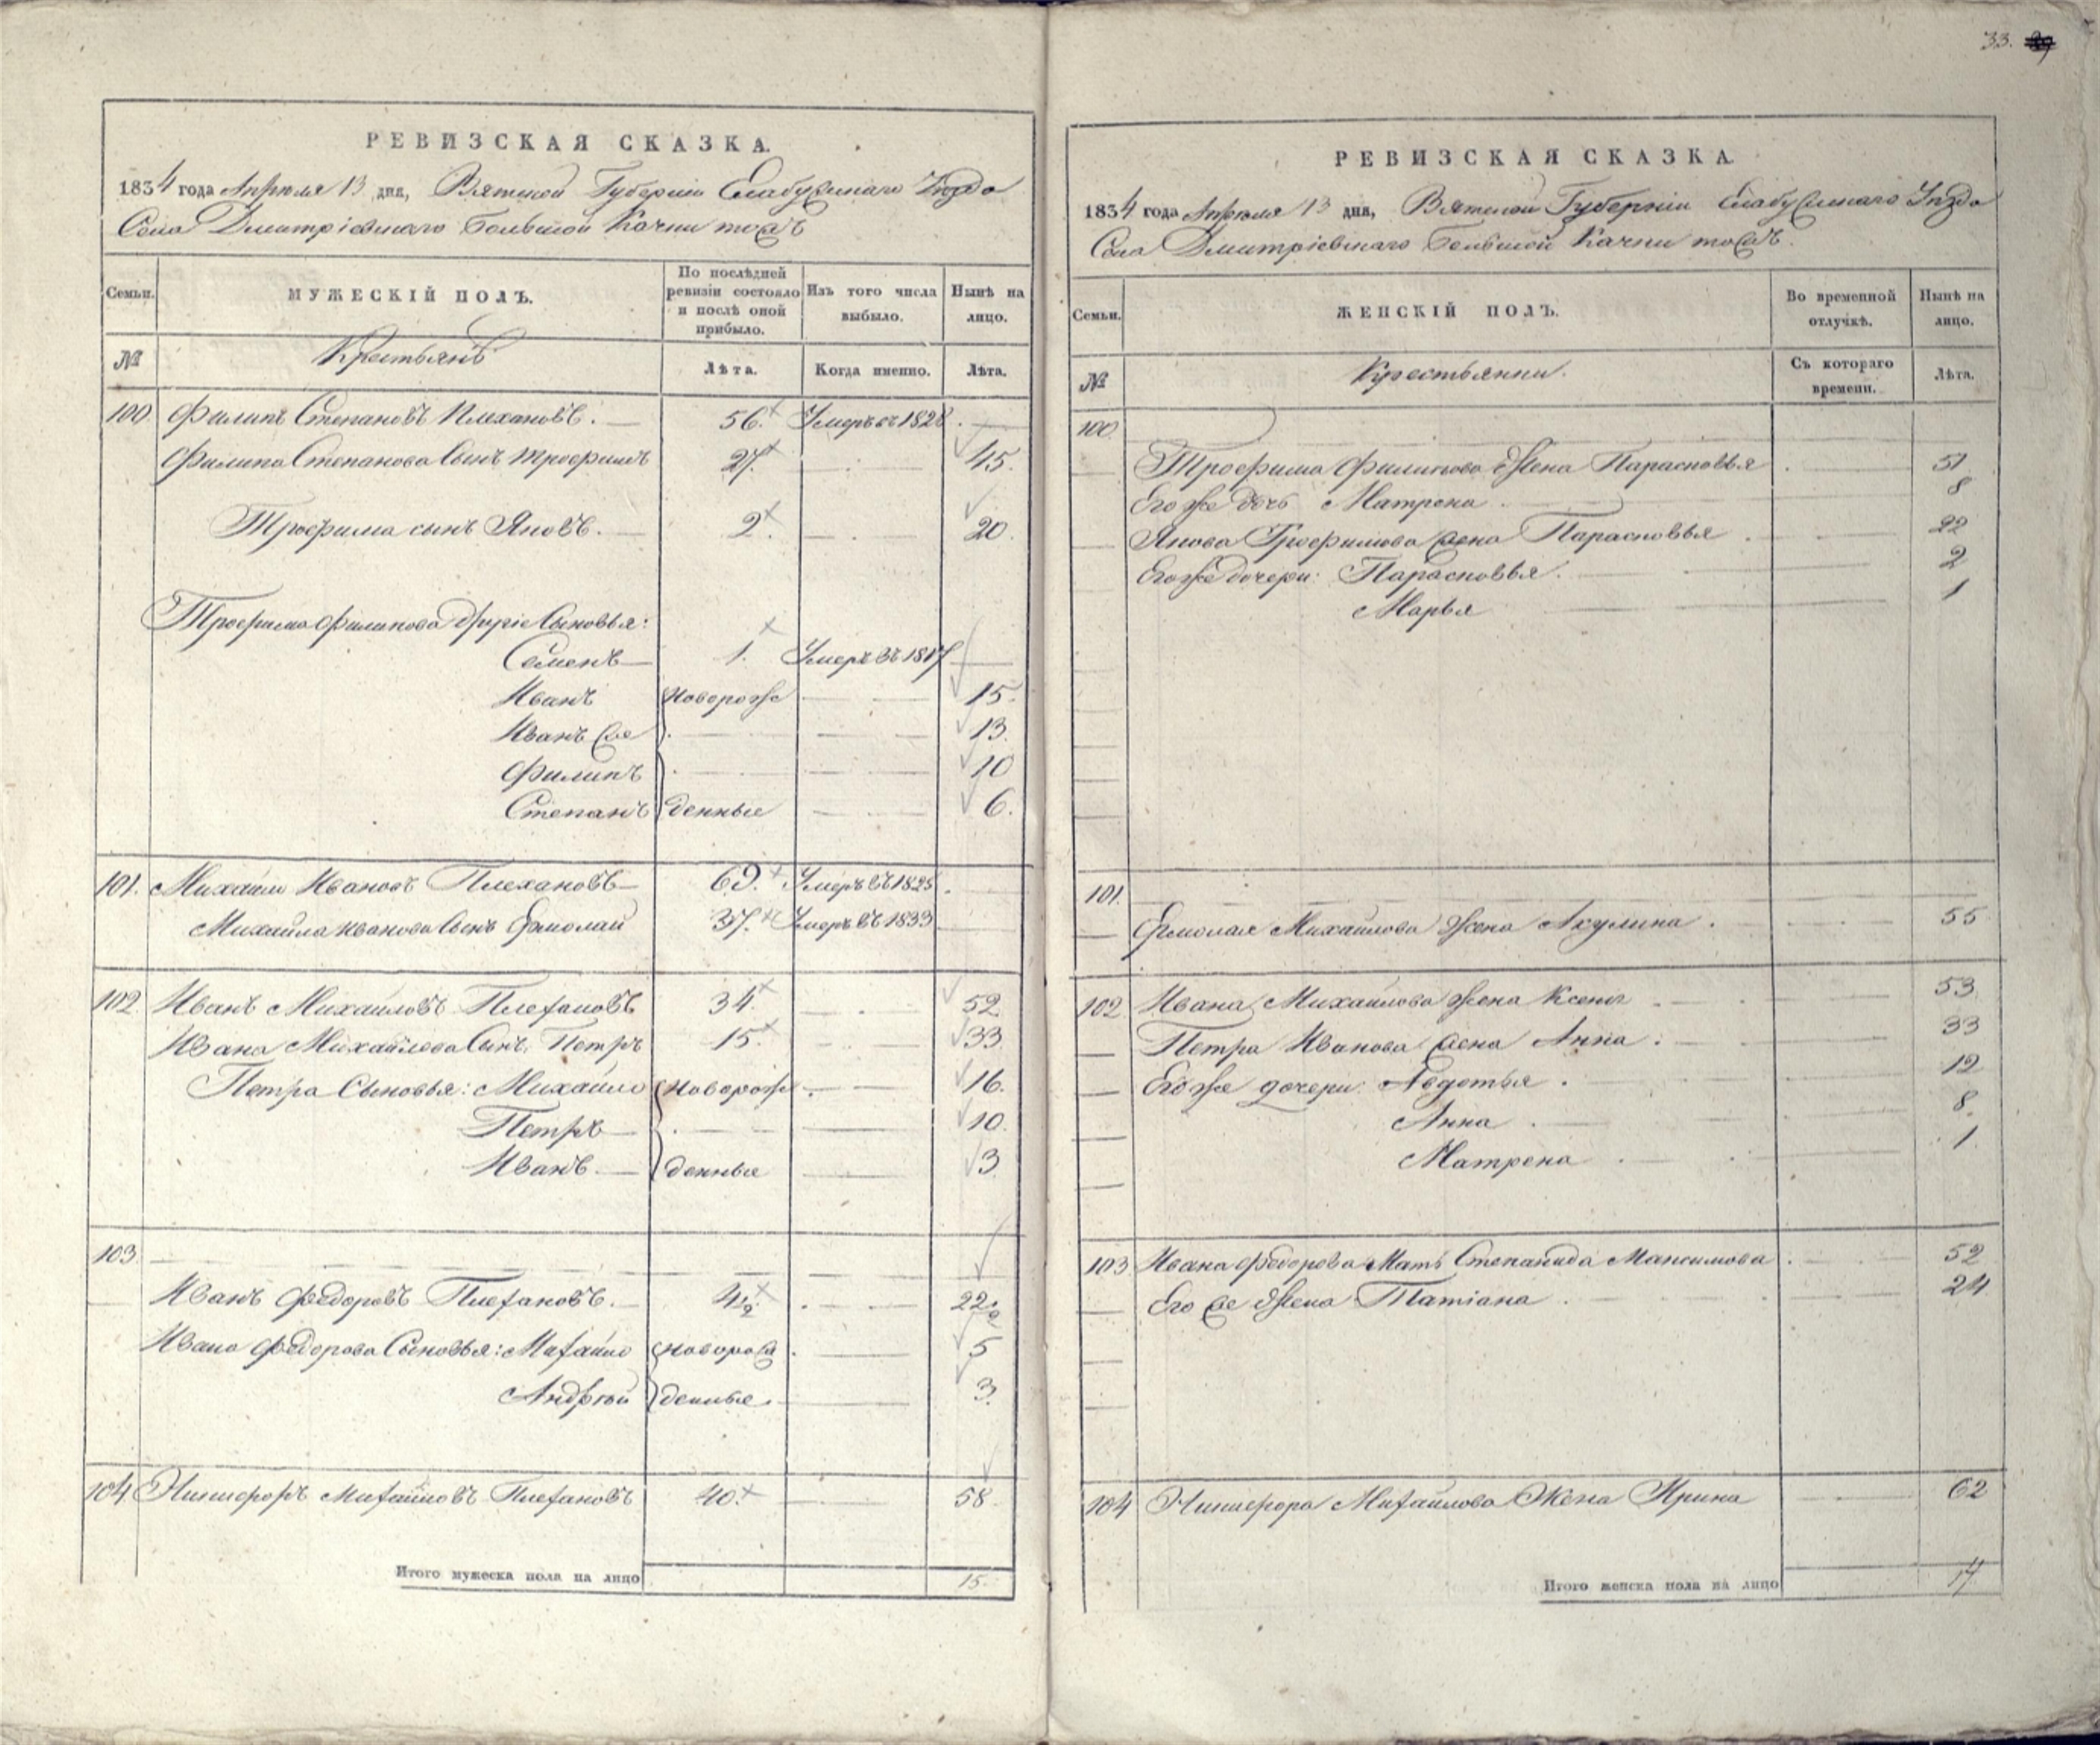 33.
РЕВИЗСКАЯ СКАЗКА.
1834 года Апрѣля 13 дня, Вятской Губерніи Елабужскаго Уѣзда
Села Дмитріевскаго Большой Качки тожъ
Семьи. МУЖЕСКІЙ ПОЛЪ. По послѣдней ревизіи состояло и послѣ оной прибыло. Изъ того числа выбыло. Нынѣ на лицо.
№ Крестьянъ Лѣта. Когда именно. Лѣта.
100. Филипъ Степановъ Плехановъ. 56. Умеръ въ 1828.
Филипа Степанова Сынъ Трофимъ 27. 45.
Трофима сынъ Яковъ. 2. 20.
Трофима Филипова другіе Сыновья:
Семенъ 1. Умеръ въ 1817
Иванъ новорож 15.
Иванъ же 13.
Филипъ 10
Степанъ денные 6.
101. Михайло Ивановъ Плехановъ 69. Умеръ въ 1825.
Михайла Иванова Сынъ Ермолай 37. Умеръ въ 1833
102. Иванъ Михайловъ Плехановъ 34. 52
Ивана Михайлова Сынъ Петръ 15. 33
Петра Сыновья: Михайло новорож 16.
Петръ 10.
Иванъ. денные 3
103
Иванъ Федоровъ Плехановъ. 4½. 22.
Ивана Федорова Сыновья: Михайло новорож 5
Андрѣй денные. 3.
104 Никифоръ Михайловъ Плехановъ 40. 58.
Итого мужеска пола на лицо 15.
РЕВИЗСКАЯ СКАЗКА.
1834 года Апрѣля 13 дня, Вятской Губерніи Елабужскаго Уѣзда
Села Дмитріевскаго Большой Качки тожъ.
Семьи. ЖЕНСКІЙ ПОЛЪ. Во временной отлучкѣ. Нынѣ на лицо.
№ Крестьянки. Съ котораго времени. Лѣта.
100.
Трофима Филипова Жена Парасковья 51
Его же дочь Матрена. 8
Якова Трофимова жена Парасковья 22
Его же дочери: Парасковья. 2
Марья 1
101.
Ермолая Михайлова Жена Акулина. 55
102. Ивана Михайлова Жена Ксенья 53
Петра Иванова жена Анна: 33
Его же дочери: Авдотья. 12
Анна 8.
Матрена 1.
103 Ивана Федорова Мать Степанида Максимова 52
Его же Жена Татіана 24
104 Никифора Михайлова Жена Ирина 62
Итого женска пола на лицо 14